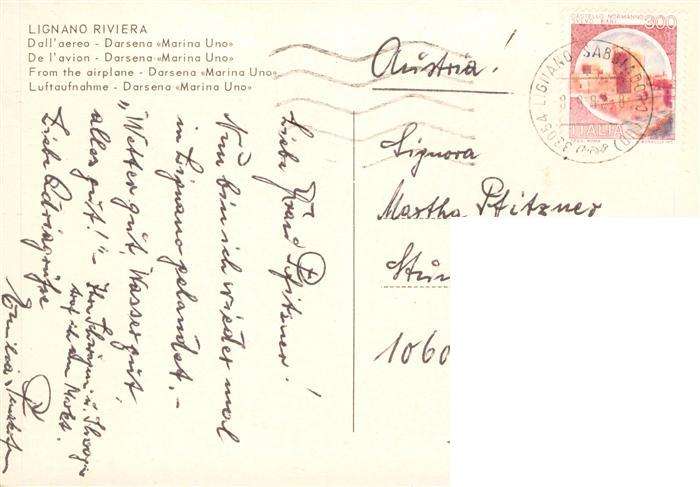 LIGNANO RIVIERA
Dall'aereo - Darsena «Marina Uno»
De l'avion - Darsena «Marina Uno»
From the airplane - Darsena «Marina Uno»
Luftaufnahme - Darsena «Marina Uno»
CASTELLO NORMANNO
300
ITALIA
33054 LIGNANO SABBIADORO (UD)
Austria!
Signora
Martha Pfitzner
1060
Liebe Frau Pfitzner!
Nun bin ich wieder mal
in Lignano gelandet. -
"Wetter gut, Wasser gut,
alles gut!" - Ihre Schwägerin u. Schwager
Liebe Adriagrüße